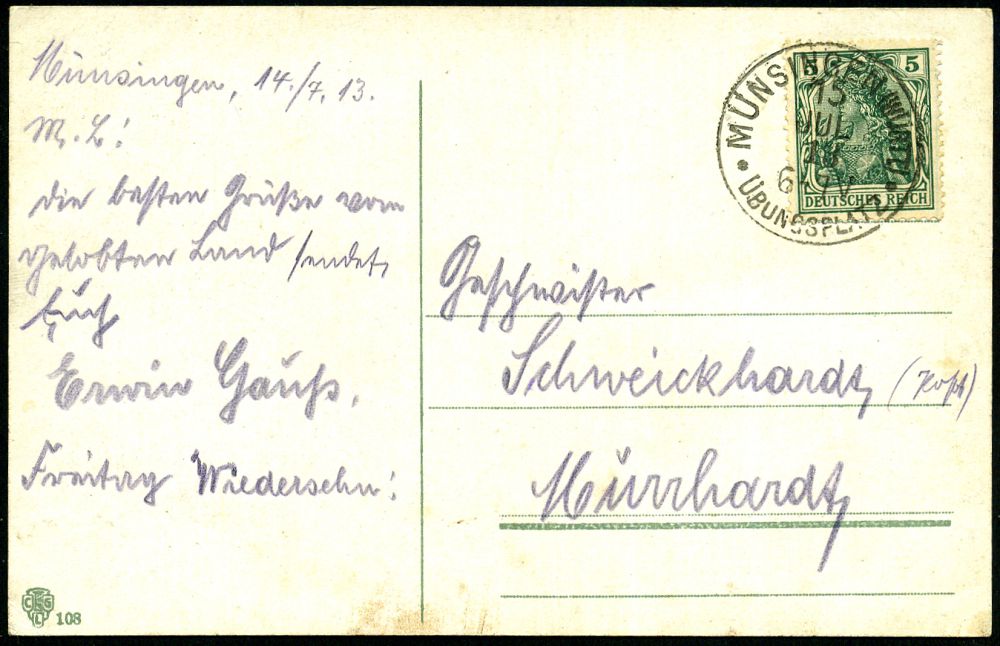 Münsingen, 14./7.13.
M. L!
die besten Grüße vom
gelobten Land sendet
Euch
Erwin Gauß.
Freitag Wiedersehn!
108
5 5
DEUTSCHES REICH
MÜNSINGEN
15
JUL
13
6 7 V
ÜBUNGSPLATZ
Geschwister
Schweickhardt (Post)
Murrhardt